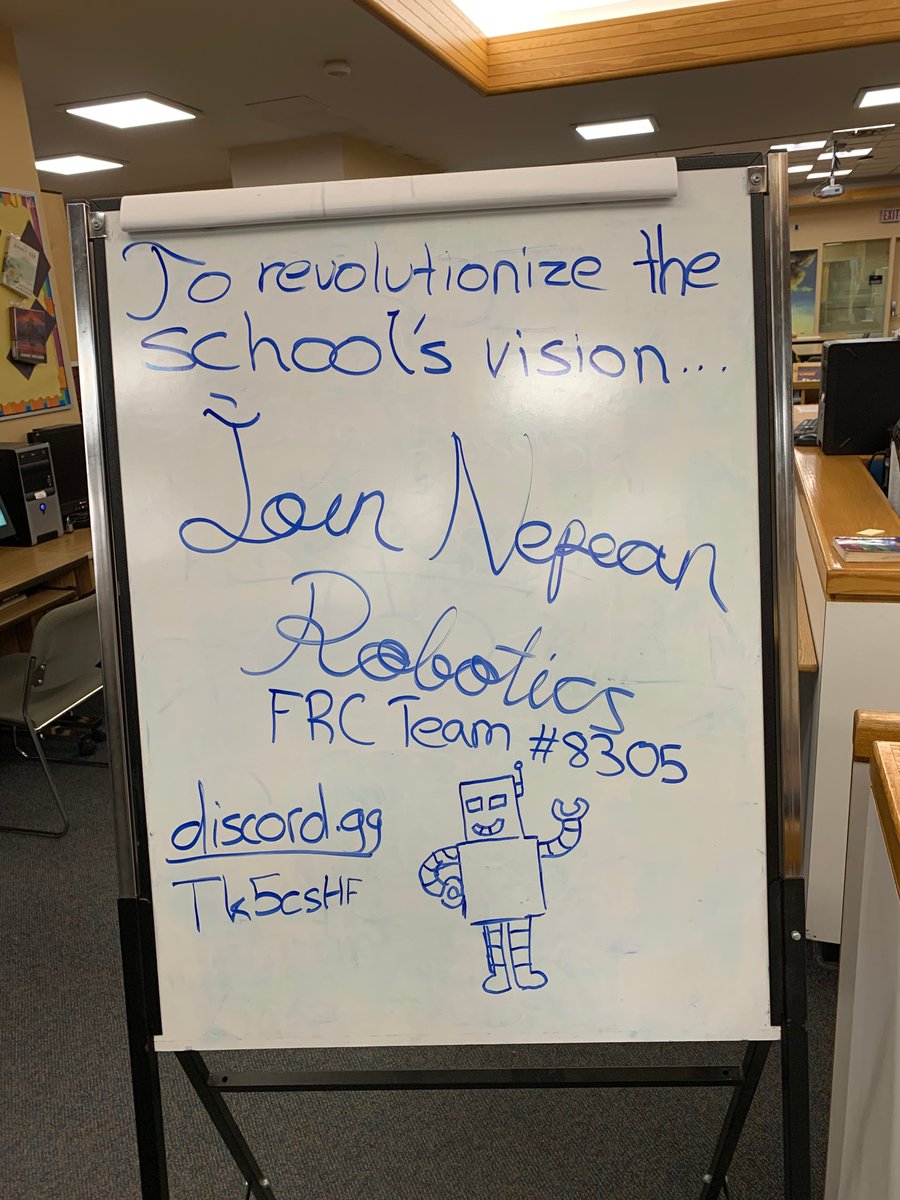 To revolutionize the
school's vision...
Join Nepean
Robotics
FRC Team #8305
discord.gg
Tk5csHF
EXIT